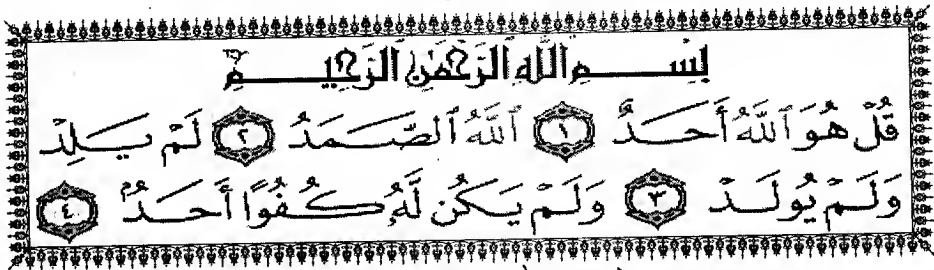 بِسْمِ اللَّهِ الرَّحْمَٰنِ الرَّحِيمِ
قُلْ هُوَ ٱللَّهُ أَحَدٌ ١ ٱللَّهُ ٱلصَّمَدُ ٢ لَمْ يَلِدْ
وَلَمْ يُولَدْ ٣ وَلَمْ يَكُن لَّهُۥ كُفُوًا أَحَدٌۢ ٤